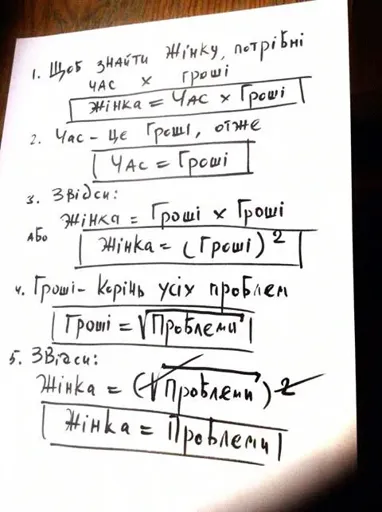 1. Щоб знайти жінку, потрібні
час x гроші
Жінка = Час x Гроші
2. Час - це Гроші, отже
Час = Гроші
3. Звідси:
Жінка = Гроші x Гроші
або
Жінка = (Гроші)²
4. Гроші - корінь усіх проблем
Гроші = √Проблеми
5. Звідси:
Жінка = (√Проблеми)²
Жінка = Проблеми